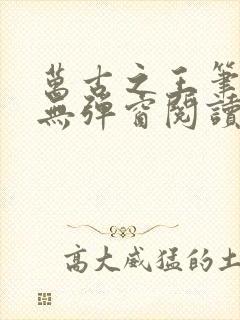 萬古之王筆
無彈窗閱讀
高大威猛的土